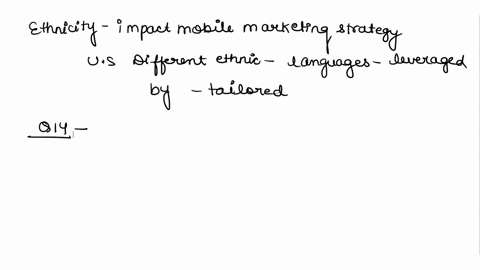 Ethnicity - impact mobile marketing strategy
U.S Different ethnic - languages - leveraged
by - tailored
Q14 -